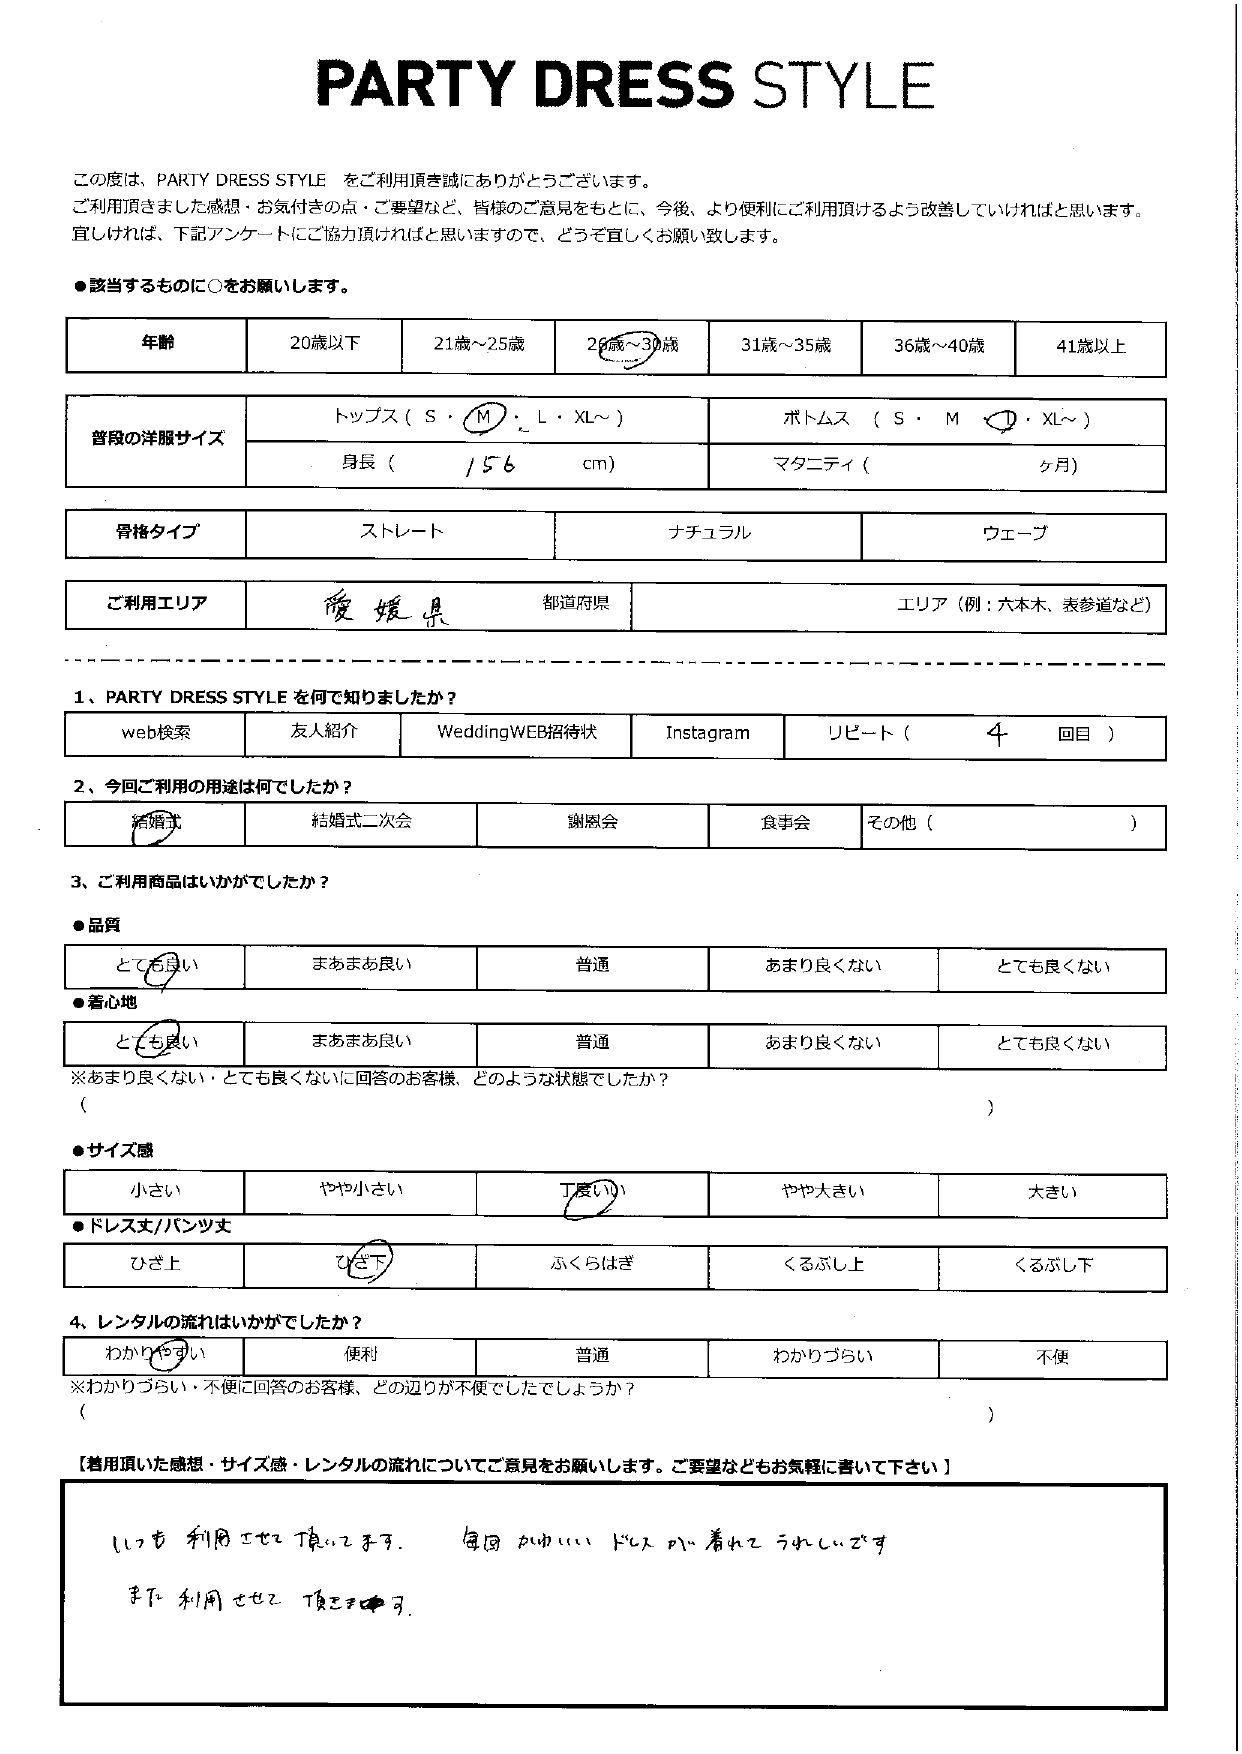 PARTY DRESS STYLE
この度は、PARTY DRESS STYLE をご利用頂き誠にありがとうございます。
ご利用頂きました感想・お気付きの点・ご要望など、皆様のご意見をもとに、今後、より便利にご利用頂けるよう改善していければと思います。
宜しければ、下記アンケートにご協力頂ければと思いますので、どうぞ宜しくお願い致します。
●該当するものに○をお願いします。
年齢 20歳以下 21歳～25歳 26歳～30歳 31歳～35歳 36歳～40歳 41歳以上
普段の洋服サイズ トップス ( S ・ M ・ L ・ XL～ ) ボトムス ( S ・ M ・ L ・ XL～ )
身長 ( 156 cm) マタニティ ( ヶ月)
骨格タイプ ストレート ナチュラル ウェーブ
ご利用エリア 愛媛県 都道府県 エリア（例：六本木、表参道など）
1、PARTY DRESS STYLE を何で知りましたか？
web検索 友人紹介 WeddingWEB招待状 Instagram リピート ( 4 回目 )
2、今回ご利用の用途は何でしたか？
結婚式 結婚式二次会 謝恩会 食事会 その他 ( )
3、ご利用商品はいかがでしたか？
●品質
とても良い まあまあ良い 普通 あまり良くない とても良くない
●着心地
とても良い まあまあ良い 普通 あまり良くない とても良くない
※あまり良くない・とても良くないに回答のお客様、どのような状態でしたか？
( )
●サイズ感
小さい やや小さい 丁度いい やや大きい 大きい
●ドレス丈/パンツ丈
ひざ上 ひざ下 ふくらはぎ くるぶし上 くるぶし下
4、レンタルの流れはいかがでしたか？
わかりやすい 便利 普通 わかりづらい 不便
※わかりづらい・不便に回答のお客様、どの辺りが不便でしたでしょうか？
( )
【着用頂いた感想・サイズ感・レンタルの流れについてご意見をお願いします。ご要望などもお気軽に書いて下さい】
いつも 利用させて頂いてます. 毎回 かわいい ドレス が 着れて うれしいです
また 利用させて 頂きます.